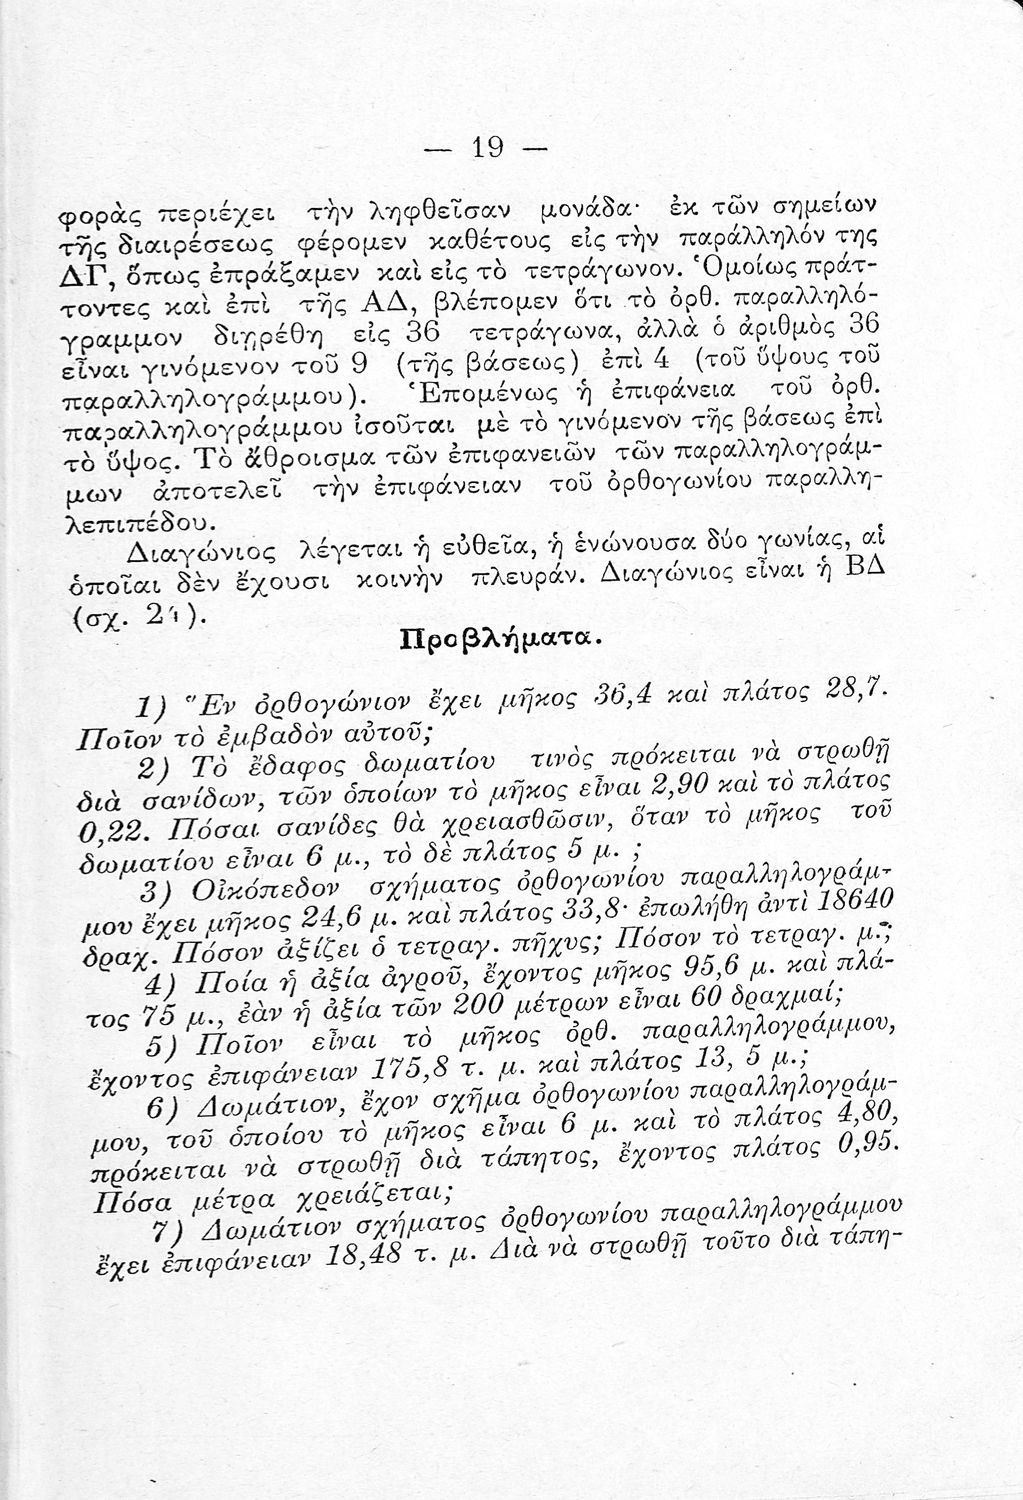 — 19 —
φορὰς περιέχει τὴν ληφθεῖσαν μονάδα· ἐκ τῶν σημείων
τῆς διαιρέσεως φέρομεν καθέτους εἰς τὴν παράλληλόν της
ΔΓ, ὅπως ἐπράξαμεν καὶ εἰς τὸ τετράγωνον. Ὁμοίως πράτ-
τοντες καὶ ἐπὶ τῆς ΑΔ, βλέπομεν ὅτι τὸ ὀρθ. παραλληλό-
γραμμον διῃρέθη εἰς 36 τετράγωνα, ἀλλὰ ὁ ἀριθμὸς 36
εἶναι γινόμενον τοῦ 9 (τῆς βάσεως) ἐπὶ 4 (τοῦ ὕψους τοῦ
παραλληλογράμμου). Ἑπομένως ἡ ἐπιφάνεια τοῦ ὀρθ.
παραλληλογράμμου ἰσοῦται μὲ τὸ γινόμενον τῆς βάσεως ἐπὶ
τὸ ὕψος. Τὸ ἄθροισμα τῶν ἐπιφανειῶν τῶν παραλληλογράμ-
μων ἀποτελεῖ τὴν ἐπιφάνειαν τοῦ ὀρθογωνίου παραλλη-
λεπιπέδου.
Διαγώνιος λέγεται ἡ εὐθεῖα, ἡ ἑνώνουσα δύο γωνίας, αἱ
ὁποῖαι δὲν ἔχουσι κοινὴν πλευράν. Διαγώνιος εἶναι ἡ ΒΔ
(σχ. 24).
Προβλήματα.
1) Ἓν ὀρθογώνιον ἔχει μῆκος 36,4 καὶ πλάτος 28,7.
Ποῖον τὸ ἐμβαδὸν αὐτοῦ;
2) Τὸ ἔδαφος δωματίου τινὸς πρόκειται νὰ στρωθῇ
διὰ σανίδων, τῶν ὁποίων τὸ μῆκος εἶναι 2,90 καὶ τὸ πλάτος
0,22. Πόσαι σανίδες θὰ χρειασθῶσιν, ὅταν τὸ μῆκος τοῦ
δωματίου εἶναι 6 μ., τὸ δὲ πλάτος 5 μ. ;
3) Οἰκόπεδον σχήματος ὀρθογωνίου παραλληλογράμ-
μου ἔχει μῆκος 24,6 μ. καὶ πλάτος 33,8· ἐπωλήθη ἀντὶ 18640
δραχ. Πόσον ἀξίζει ὁ τετραγ. πῆχυς; Πόσον τὸ τετραγ. μ.;
4) Ποία ἡ ἀξία ἀγροῦ, ἔχοντος μῆκος 95,6 μ. καὶ πλά-
τος 75 μ., ἐὰν ἡ ἀξία τῶν 200 μέτρων εἶναι 60 δραχμαί;
5) Ποῖον εἶναι τὸ μῆκος ὀρθ. παραλληλογράμμου,
ἔχοντος ἐπιφάνειαν 175,8 τ. μ. καὶ πλάτος 13, 5 μ.;
6) Δωμάτιον, ἔχον σχῆμα ὀρθογωνίου παραλληλογράμ-
μου, τοῦ ὁποίου τὸ μῆκος εἶναι 6 μ. καὶ τὸ πλάτος 4,80,
πρόκειται νὰ στρωθῇ διὰ τάπητος, ἔχοντος πλάτος 0,95.
Πόσα μέτρα χρειάζεται;
7) Δωμάτιον σχήματος ὀρθογωνίου παραλληλογράμμου
ἔχει ἐπιφάνειαν 18,48 τ. μ. Διὰ νὰ στρωθῇ τοῦτο διὰ τάπη-